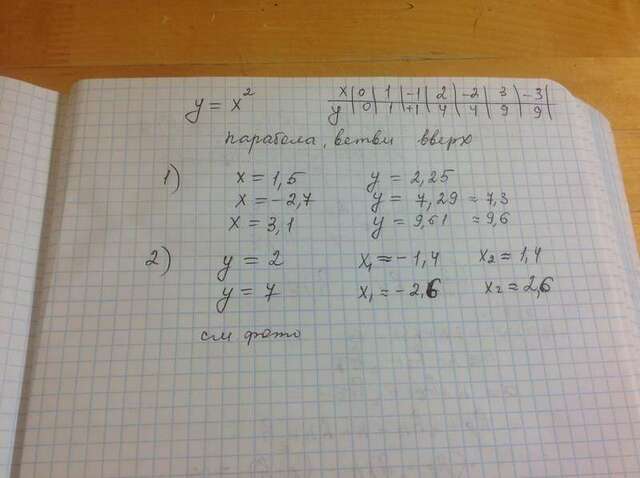 y = x² x | 0 | 1 | -1 | 2 | -2 | 3 | -3 |
y | 0 | 1 | +1 | 4 | 4 | 9 | 9 |
парабола, ветви вверх
1) x = 1,5 y = 2,25
x = -2,7 y = 7,29 ≈ 7,3
x = 3,1 y = 9,61 ≈ 9,6
2) y = 2 x₁ ≈ -1,4 x₂ ≈ 1,4
y = 7 x₁ ≈ -2,6 x₂ ≈ 2,6
см. фото